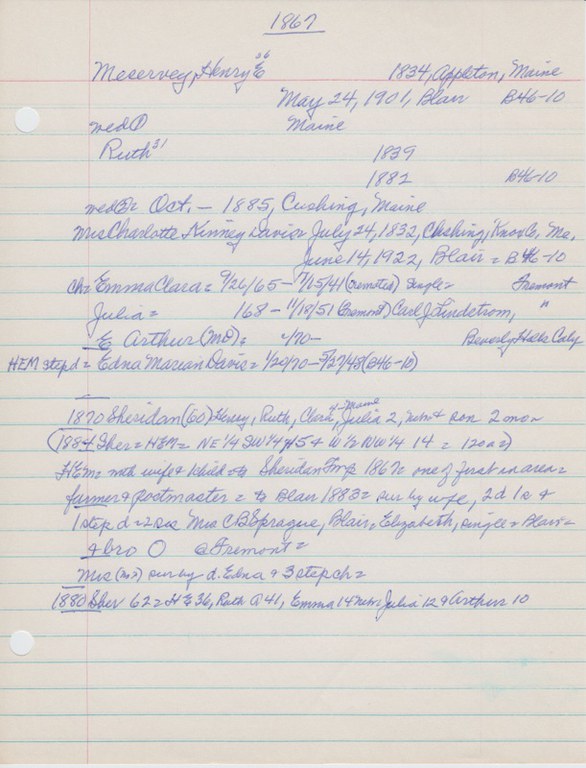 1867
Meservey, Henry E 36 1834, Appleton, Maine
May 24, 1901, Blair B46-10
wed ① Maine
Ruth 31 1839
1882 B46-10
wed 2: Oct. — 1885, Cushing, Maine
Mrs Charlotte Kinney Davis = July 24, 1832, Cushing, Knox Co, Me,
June 14, 1922, Blair = B46-10
ch = Emma Clara = 9/26/65 - 7/15/41 (cremated) single = Fremont
Julia = 1868 - 11/18/51 (Fremont) Carl J Lindstrom, "
E Arthur (MD) = 2/70- Beverly Hills Caly
HEM step d = Edna Marian Davis = 1/20/70 - 3/27/48 (B46-10)
1870 Sheridan (60) Henry, Ruth, Clara 4-Maine, Julia 2, Nebr & son 2 mo =
(1884 Sher = HEM = NE 1/4 SW 1/4 15 & W 1/2 NW 1/4 14 = 120a =)
HEM = with wife & child to Sheridan Twp 1867 = one of first in area =
farmer & postmaster = to Blair 1883 = sur by wife, 2 d 1 s &
1 step d = 2 sis Mrs C B Sprague, Blair, Elizabeth, single = Blair =
& bro O @ Fremont =
Mrs (no 2) sur by d. Edna & 3 step ch =
1880 Sher 62 = H E 36, Ruth @ 41, Emma 14 Nebr Julia 12 & Arthur 10